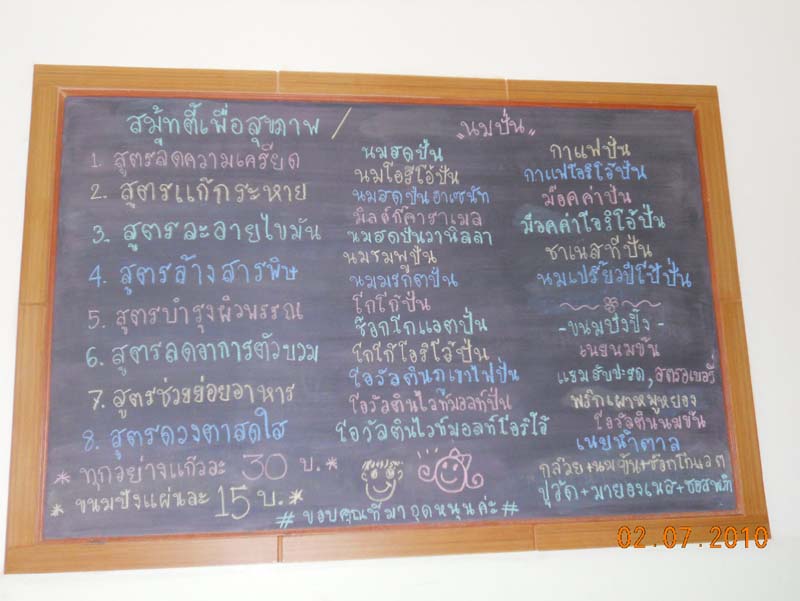 สมู้ทตี้เพื่อสุขภาพ /
1. สูตรลดความเครียด
2. สูตรแก้กระหาย
3. สูตรละลายไขมัน
4. สูตรล้างสารพิษ
5. สูตรบำรุงผิวพรรณ
6. สูตรลดอาการตัวบวม
7. สูตรช่วยย่อยอาหาร
8. สูตรดวงตาสดใส
* ทุกอย่างแก้วละ 30 บ. *
* ขนมปังแผ่นละ 15 บ. *
"นมปั่น"
นมสดปั่น
นมโอริโอ้ปั่น
นมสดปั่นฮาเซนัท
มิลค์กี้คาราเมล
นมสดปั่นวานิลลา
นมชมพูปั่น
นมมรกตปั่น
โกโก้ปั่น
ช๊อกโกแลตปั่น
โกโก้โอริโอ้ปั่น
โอวัลตินภูเขาไฟปั่น
โอวัลตินไวท์มอลท์ปั่น
โอวัลตินไวท์มอลท์โอริโอ้
กาแฟปั่น
กาแฟโอริโอ้ปั่น
ม๊อคค่าปั่น
ม๊อคค่าโอริโอ้ปั่น
ชาเนสที่ปั่น
นมเปรี้ยวปีโป้ปั่น
-ขนมปังปิ้ง-
เนยนมข้น
แยมสับปะรด, สตรอเบอรี่
พริกเผาหมูหยอง
โอวัลตินนมข้น
เนยน้ำตาล
กล้วย+นมข้น+ช๊อกโกแลต
ปูวัด+มายองเนส+ซอสพริก
# ขอบคุณที่มาอุดหนุนค่ะ #
02.07.2010